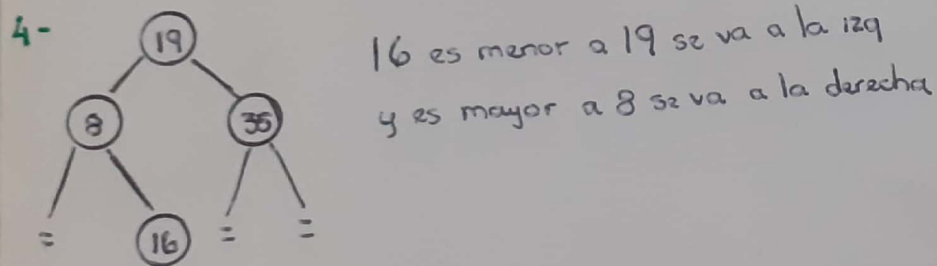 4-
19
16 es menor a 19 se va a la izq
8
35
y es mayor a 8 se va a la derecha
=
16
=
=